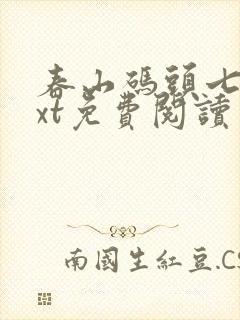 春山碼頭七
xt免費閱讀
南國生紅豆.CS